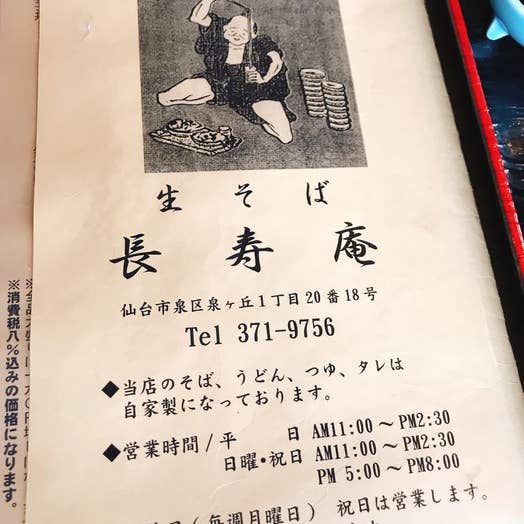 生そば
長寿庵
仙台市泉区泉ヶ丘1丁目20番18号
Tel 371-9756
◆当店のそば、うどん、つゆ、タレは
自家製になっております。
◆営業時間/平　　日 AM11:00～PM2:30
日曜・祝日 AM11:00～PM2:30
PM 5:00～PM8:00
日（毎週月曜日） 祝日は営業します。
※消費税八%込みの価格になります。